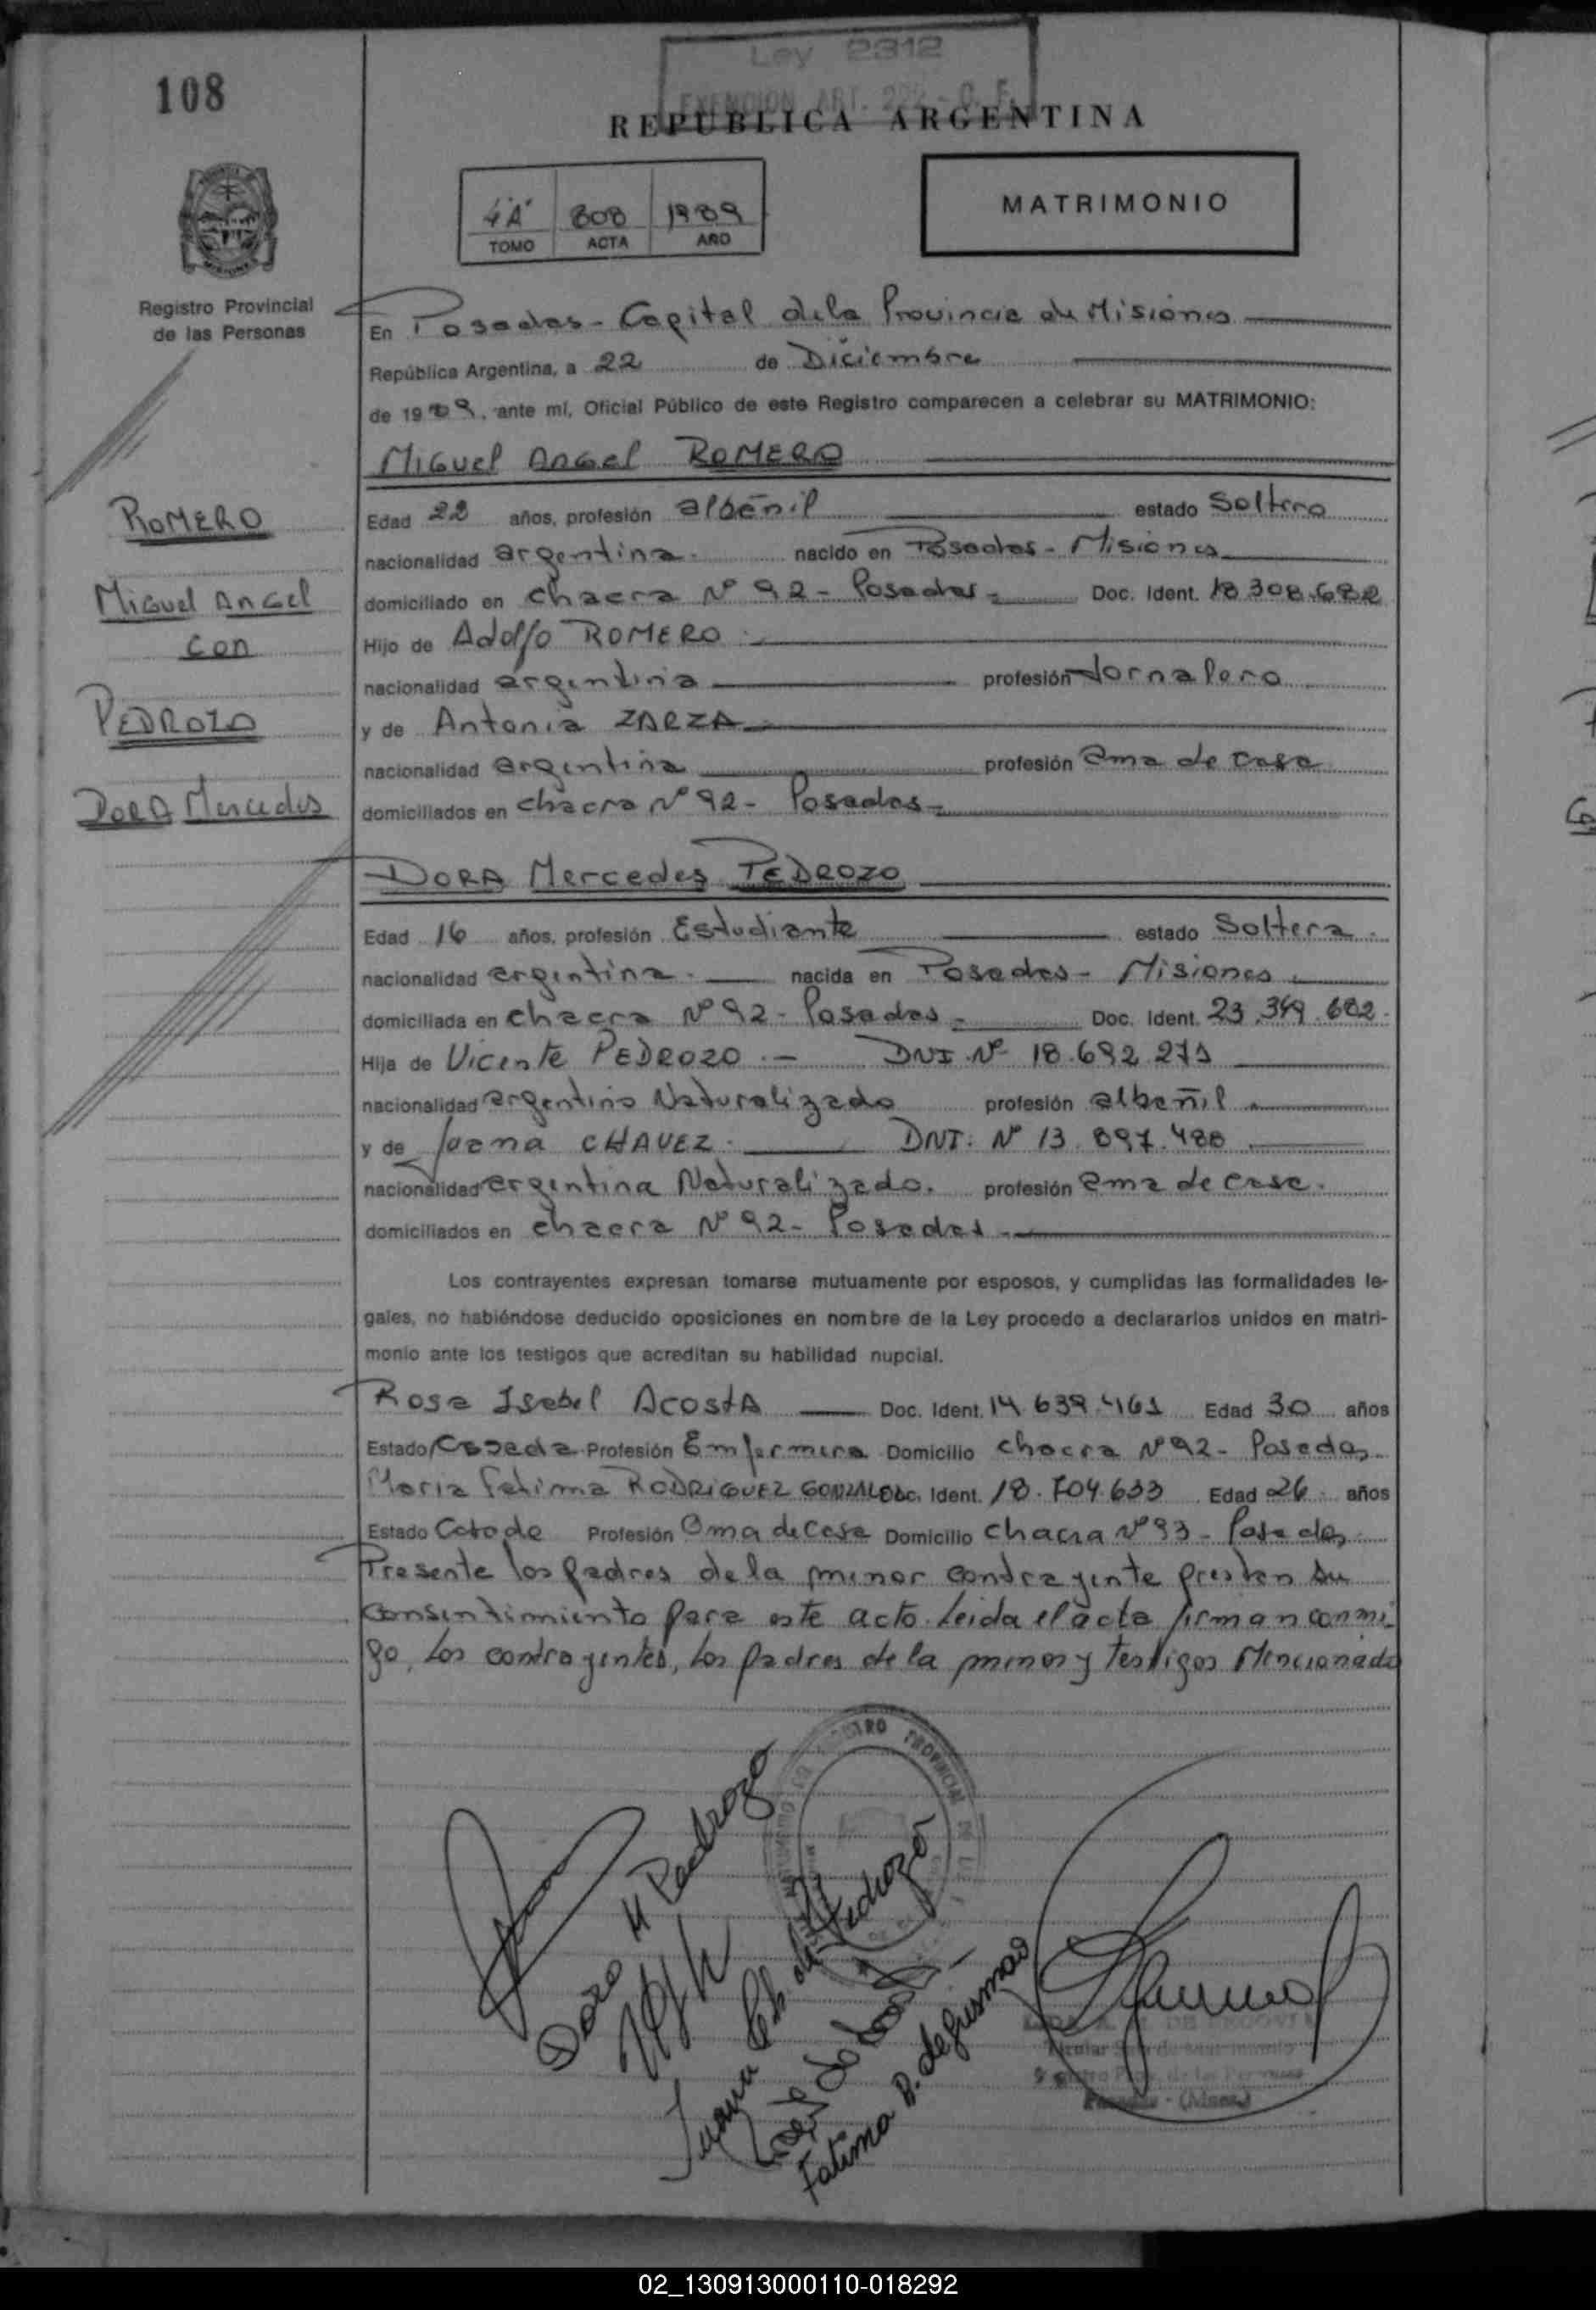 108
Ley 2312
EXENCION ART. 292 - C. F.
REPUBLICA ARGENTINA
4"A" 808 1989
TOMO ACTA AÑO
MATRIMONIO
Registro Provincial
de las Personas
En Posadas - Capital de la Provincia de Misiones
República Argentina, a 22 de Diciembre
de 1989, ante mí, Oficial Público de este Registro comparecen a celebrar su MATRIMONIO:
Miguel Angel ROMERO
ROMERO
Miguel Angel
con
PEDROZO
DORA Mercedes
Edad 22 años, profesión albañil estado Soltero
nacionalidad argentina. nacido en Posadas - Misiones
domiciliado en chacra Nº 92 - Posadas - Doc. Ident. 18.308.682
Hijo de Adolfo ROMERO
nacionalidad argentina profesión Jornalero
y de Antonia ZARZA
nacionalidad argentina profesión ama de casa
domiciliados en chacra Nº 92 - Posadas -
DORA Mercedes PEDROZO
Edad 16 años, profesión Estudiante estado Soltera.
nacionalidad argentina. nacida en Posadas - Misiones
domiciliada en chacra Nº 92 - Posadas - Doc. Ident. 23.349.682.
Hija de Vicente PEDROZO.- DNI Nº 18.692.271
nacionalidad argentino Naturalizado profesión albañil
y de Juana CHAVEZ. DNI: Nº 13.897.488
nacionalidad argentina Naturalizado. profesión ama de casa.
domiciliados en chacra Nº 92 - Posadas -
Los contrayentes expresan tomarse mutuamente por esposos, y cumplidas las formalidades le-
gales, no habiéndose deducido oposiciones en nombre de la Ley procedo a declararlos unidos en matri-
monio ante los testigos que acreditan su habilidad nupcial.
Rosa Isabel Acosta Doc. Ident. 14.639.461 Edad 30 años
Estado Casada Profesión Enfermera Domicilio chacra Nº 92 - Posadas
Maria Fatima RODRIGUEZ GONZALES Doc. Ident. 18.704.633 Edad 26 años
Estado Casada Profesión Ama de Casa Domicilio chacra Nº 93 - Posadas
Presente los padres de la menor contrayente prestan su
consentimiento para este acto. Leida el acta firman conmi-
go, los contrayentes, los padres de la menor y testigos Mencionado
REGISTRO PROVINCIAL DE LA
Dora M Pedrozo
Juana Ch. de Pedrozo
Fatima R. de Gusmao
DE SEGOVIA
Titular
Registro Prov. de las Personas
Posadas - (Mnes.)
02_130913000110-018292